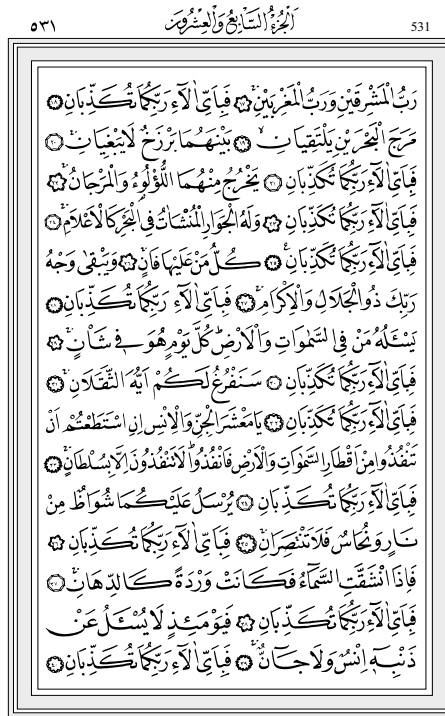 ٥٣١ اَلْجُزْءُ السَّابِعُ وَالْعِشْرُونَ 531
رَبُّ الْمَشْرِقَيْنِ وَرَبُّ الْمَغْرِبَيْنِۚ ﴿١٧﴾ فَبِاَيِّ اٰلَٓاءِ رَبِّكُمَا تُكَذِّبَانِ ﴿١٨﴾
مَرَجَ الْبَحْرَيْنِ يَلْتَقِيَانِۙ ﴿١٩﴾ بَيْنَهُمَا بَرْزَخٌ لَا يَبْغِيَانِۚ ﴿٢٠﴾
فَبِاَيِّ اٰلَٓاءِ رَبِّكُمَا تُكَذِّبَانِ ﴿٢١﴾ يَخْرُجُ مِنْهُمَا اللُّؤْلُؤُ۬ وَالْمَرْجَانُۚ ﴿٢٢﴾
فَبِاَيِّ اٰلَٓاءِ رَبِّكُمَا تُكَذِّبَانِ ﴿٢٣﴾ وَلَهُ الْجَوَارِ الْمُنْشَاٰتُ فِي الْبَحْرِ كَالْاَعْلَامِۚ ﴿٢٤﴾
فَبِاَيِّ اٰلَٓاءِ رَبِّكُمَا تُكَذِّبَانِ۟ ﴿٢٥﴾ كُلُّ مَنْ عَلَيْهَا فَانٍۚ ﴿٢٦﴾ وَيَبْقٰى وَجْهُ
رَبِّكَ ذُو الْجَلَالِ وَالْاِكْرَامِۚ ﴿٢٧﴾ فَبِاَيِّ اٰلَٓاءِ رَبِّكُمَا تُكَذِّبَانِ ﴿٢٨﴾
يَسْـَٔلُهُ مَنْ فِي السَّمٰوَاتِ وَالْاَرْضِۜ كُلَّ يَوْمٍ هُوَ فِي شَاْنٍۚ ﴿٢٩﴾
فَبِاَيِّ اٰلَٓاءِ رَبِّكُمَا تُكَذِّبَانِ ﴿٣٠﴾ سَنَفْرُغُ لَكُمْ اَيُّهَ الثَّقَلَانِۚ ﴿٣١﴾
فَبِاَيِّ اٰلَٓاءِ رَبِّكُمَا تُكَذِّبَانِ ﴿٣٢﴾ يَا مَعْشَرَ الْجِنِّ وَالْاِنْسِ اِنِ اسْتَطَعْتُمْ اَنْ
تَنْفُذُوا مِنْ اَقْطَارِ السَّمٰوَاتِ وَالْاَرْضِ فَانْفُذُواۜ لَا تَنْفُذُونَ اِلَّا بِسُلْطَانٍۚ ﴿٣٣﴾
فَبِاَيِّ اٰلَٓاءِ رَبِّكُمَا تُكَذِّبَانِ ﴿٣٤﴾ يُرْسَلُ عَلَيْكُمَا شُوَاظٌ مِنْ
نَارٍ وَنُحَاسٌ فَلَا تَنْتَصِرَانِۚ ﴿٣٥﴾ فَبِاَيِّ اٰلَٓاءِ رَبِّكُمَا تُكَذِّبَانِ ﴿٣٦﴾
فَاِذَا انْشَقَّتِ السَّمَٓاءُ فَكَانَتْ وَرْدَةً كَالدِّهَانِۚ ﴿٣٧﴾
فَبِاَيِّ اٰلَٓاءِ رَبِّكُمَا تُكَذِّبَانِ ﴿٣٨﴾ فَيَوْمَئِذٍ لَا يُسْـَٔلُ عَنْ
ذَنْبِه۪ٓ اِنْسٌ وَلَا جَٓانٌّۚ ﴿٣٩﴾ فَبِاَيِّ اٰلَٓاءِ رَبِّكُمَا تُكَذِّبَانِ ﴿٤٠﴾